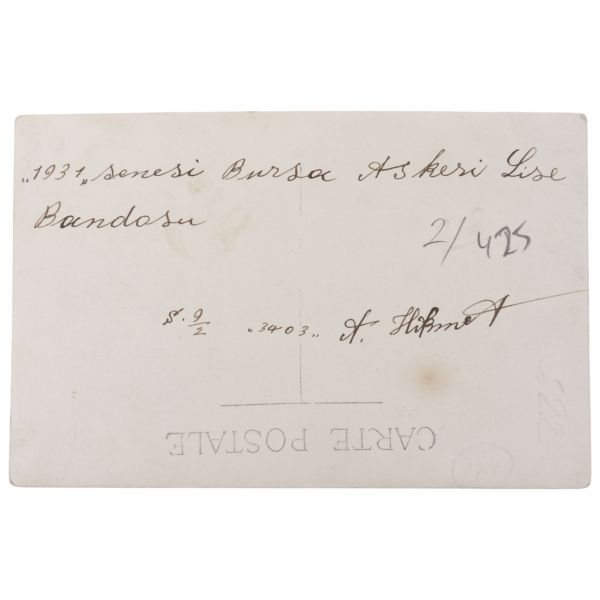 „1931„ senesi Bursa Askeri Lise
Bandosu
2/425
S. 9/2 „3403„ A. Hikmet
CARTE POSTALE
522